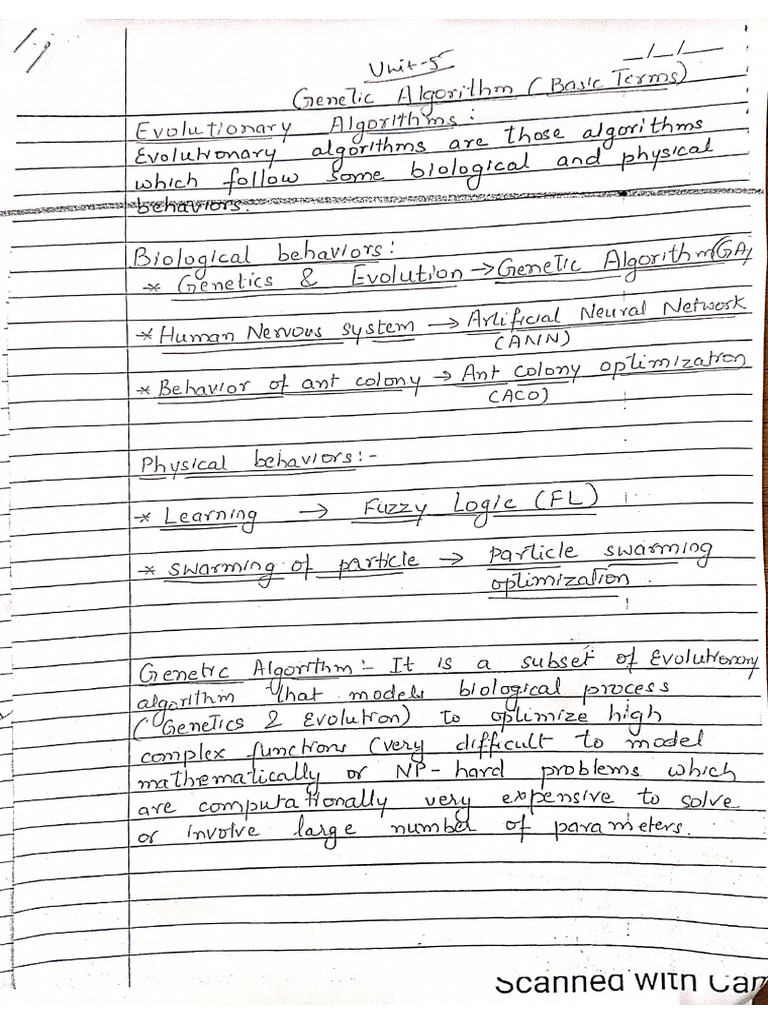 Unit-5
_/_/_
Genetic Algorithm (Basic Terms)
Evolutionary Algorithms:
Evolutionary algorithms are those algorithms
which follow some biological and physical
behaviors.
Biological behaviors:
* Genetics & Evolution → Genetic Algorithm (GA)
* Human Nervous system → Artificial Neural Network
(ANN)
* Behavior of ant colony → Ant colony optimization
(ACO)
Physical behaviors:-
* Learning → Fuzzy Logic (FL)
* swarming of particle → Particle swarming
optimization.
Genetic Algorithm:- It is a subset of Evolutionary
algorithm that models biological process
(Genetics & Evolution) to optimize high
complex functions (very difficult to model
mathematically or NP-hard problems which
are computationally very expensive to solve
or involve large number of parameters.
Scanned with Cam